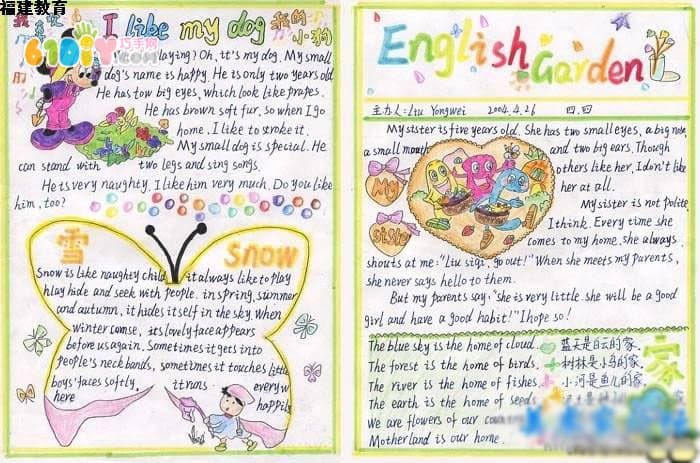 福建教育
I like my dog 我的
小狗
61DIY 巧手网
laying? Oh, it's my dog. My small
dog's name is happy. He is only two years old
He has tow big eyes, which look like prapes.
He has brown soft fur, so when I go
home. I like to stroke it.
My small dog is special. He
can stand with two legs and sing songs.
He is very naughty. I like him very much. Do you like
him, too?
雪 Snow
Snow is like naughty child it always like to play
hlay hide and seek with people. in spring, summer
and autumn, it hides itself in the sky. When
winter comse, its lovely face appears
before us again. Sometimes it gets into
people's neck bands, sometimes it touches little
boys' faces softly. it runs everyw
here happily
English
Garden
主办人:Liu Yongwei 2004.4.26 四.四
My sister is five years old. She has two small eyes, a big nose,
a small mouth and two big ears. Though
others like her, I don't like
her at all.
My
Siste
My sister is not polite,
I think. Every time she
comes to my home, she always
shouts at me: "Liu siqi, go out!" When she meets my parents,
she never says hello to them.
But my parents say, "she is very little. she will be a good
girl and have a good habit!" I hope so!
The blue sky is the home of cloud. 蓝天是白云的家.
The forest is the home of birds. 树林是小鸟的家.
The river is the home of fishes. 小河是鱼儿的家.
The earth is the home of seeds
We are flowers of our
Motherland is our home.
家